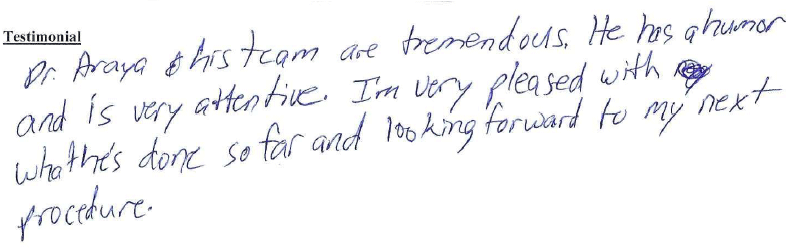 Testimonial
Dr. Araya & his team are tremendous. He has a humor
and is very attentive. I'm very pleased with
what he's done so far and looking forward to my next
procedure.